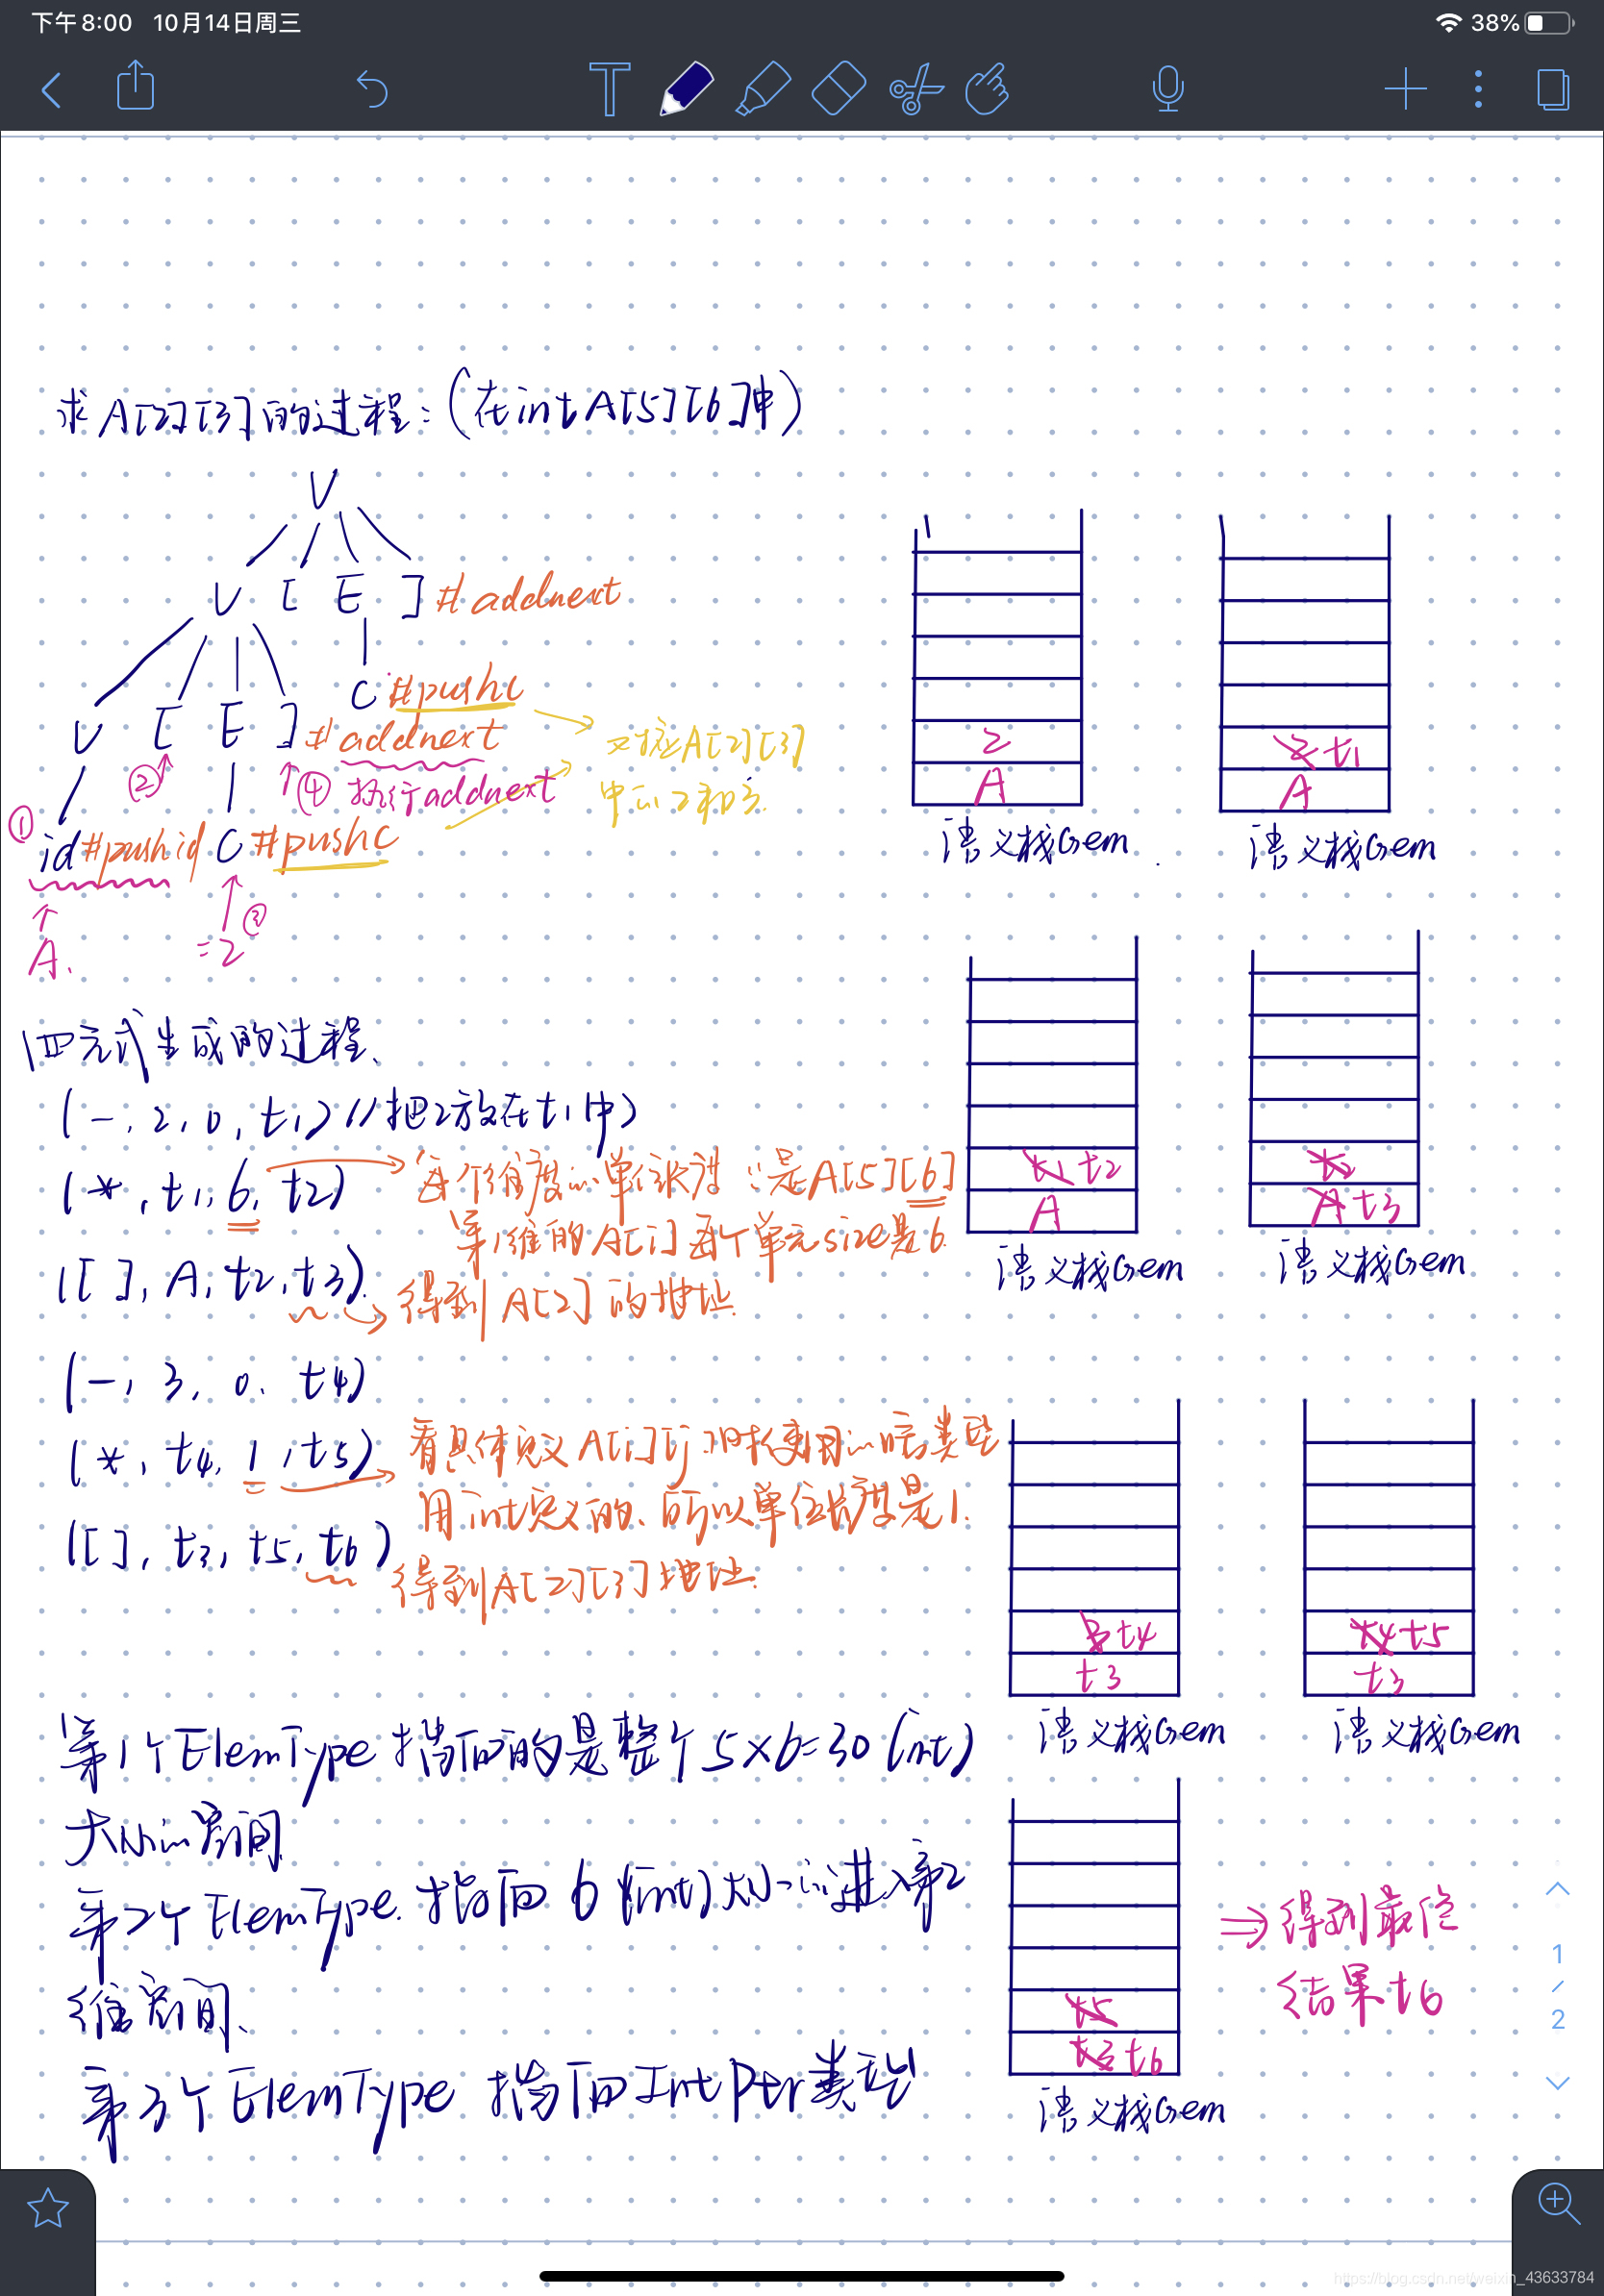 下午8:00 10月14日周三
38%
T
求A[2][3]的过程:(在int A[5][6]中)
V
V [ E ] #addnext
C #pushc
V [ E ] #addnext
② ④ 执行addnext
对应A[2][3]
中的2和3.
① id #pushid C #pushc
③
A. =2
四元式生成的过程、
(-, 2, 0, t1) //把2放在t1中
(*, t1, 6, t2) 每个维度的单位长度 ∵是A[5][6]
第1维的A[i]每个单元size是6.
([ ], A, t2, t3). 得到A[2]的地址.
(-, 3, 0. t4)
(*, t4, 1, t5) 看具体定义A[i][j]时使用的啥类型
用int定义的、所以单位长度是1.
([ ], t3, t5, t6) 得到A[2][3]地址.
第1个ElemType 指向的是整个5×6=30(int)
大小的空间.
第2个ElemType. 指向6(int)大小的进入第2
维空间、
第3个ElemType 指向IntPtr类型
2
A
语义栈Gem
2 t1
A
语义栈Gem
t1 t2
A
语义栈Gem
t2
A t3
语义栈Gem
3 t4
t3
语义栈Gem
t4 t5
t3
语义栈Gem
t5
t3 t6
语义栈Gem
⇒得到最终
结果t6
1
/
2
https://blog.csdn.net/weixin_43633784